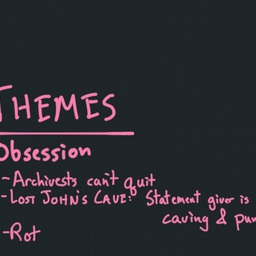 THEMES
Obsession
-Archivests can't quit
-LOST JOHN'S CAVE: Statement giver is
caving &
-Rot